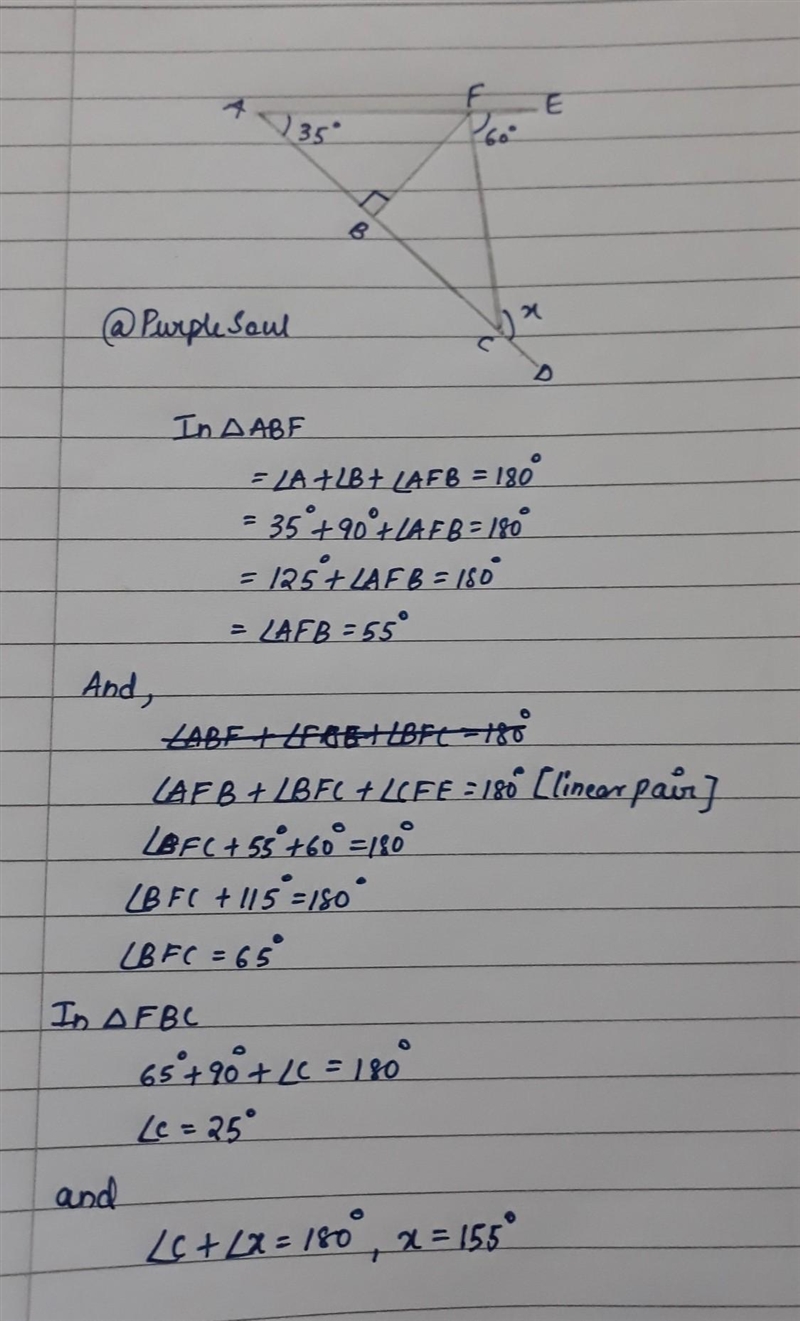 A F E
35° 60°
B
@PurpleSoul
x
C
D
In △ABF
= ∠A+∠B+ ∠AFB = 180°
= 35°+90°+∠AFB=180°
= 125°+∠AFB = 180°
= ∠AFB = 55°
And,
∠AFB + ∠BFC + ∠CFE = 180° [linear pair]
∠BFC + 55°+60°=180°
∠BFC + 115°=180°
∠BFC = 65°
In △FBC
65°+90°+∠C = 180°
∠C = 25°
and
∠C + ∠x = 180°, x = 155°